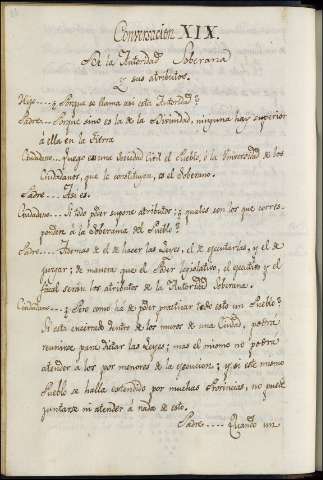 Conversacion XIX.
De la Autoridad Soberana
y sus atributos.
Hijo.... ¿Porque se llama asi esta Autoridad?
Padre... Porque sino es la de la Divinidad, ninguna hay superior
á ella en la tierra
Ciudadano.. Luego en una Sociedad Civil el Pueblo, ó la Universidad de los
Ciudadanos, que la constituyen, es el Soberano.
Padre.... Asi es.
Ciudadano... Si todo poder supone atributos; ¿quales son los que corres-
ponden á la Soberania del Pueblo?
Padre.... Ademas de el de hacer las Leyes, el de ejecutarlas, y el de
juzgar; de manera que el Poder legislativo, el ejecutivo y el
fiscal serán los atributos de la Autoridad Soberana.
Ciudadano.. ¿Pero como há de poder practicar todo esto un Pueblo?
Si esta encerrado dentro de los muros de una Ciudad, podrá
reunirse para dictar las Leyes; mas el mismo no podrá
atender á los por menores de la ejecucion; y si este mismo
Pueblo se halla extendido por muchas Provincias, no puede
juntarse ni atender á nada de esto.
Padre.... Quando un